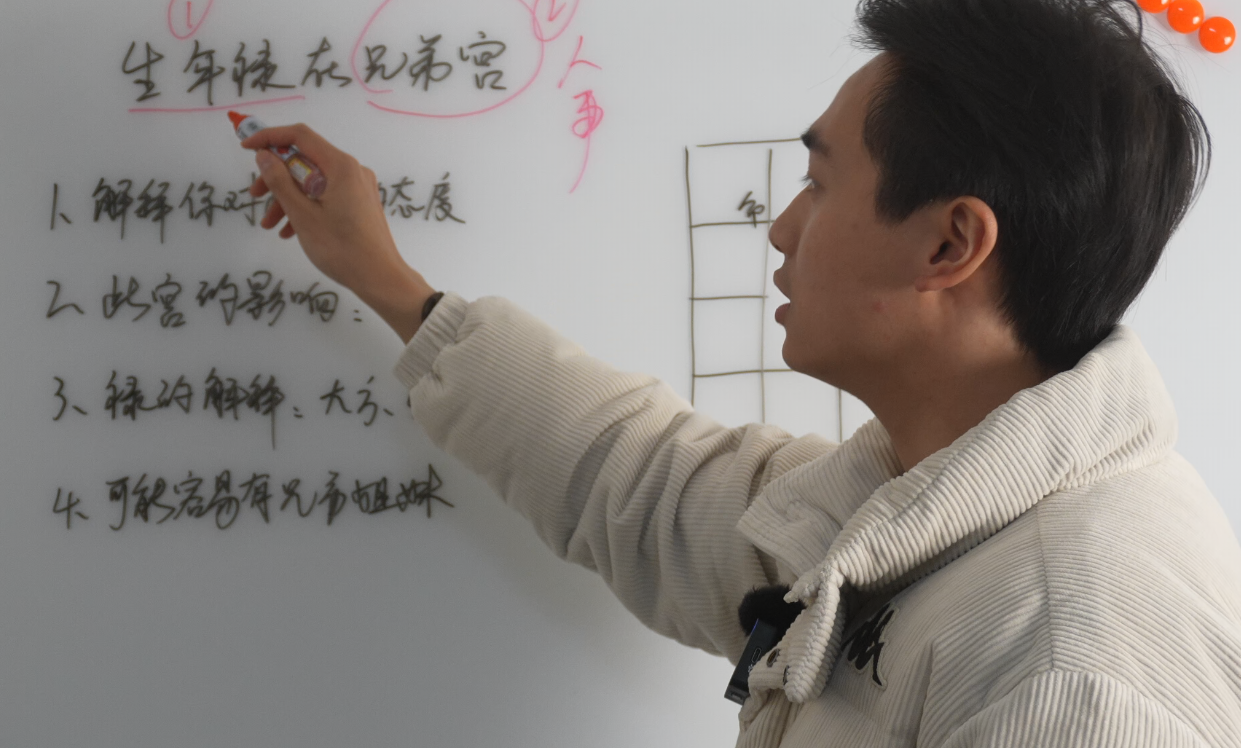 ① ②
生年禄在兄弟宫
人事
1、解释你对 态度
2、此宫的影响：
3、禄的解释：大方、
4、可能容易有兄弟姐妹
命